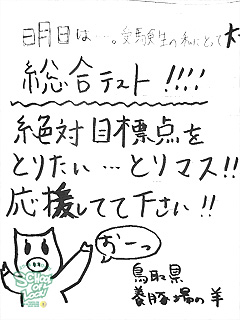 明日は…。受験生の私にとって
総合テスト!!!!
絶対目標点を
とりたい…とりマス!!
応援してて下さい!!
おーっ
鳥取県
養豚場の羊
SCHOOL OF LOCK!